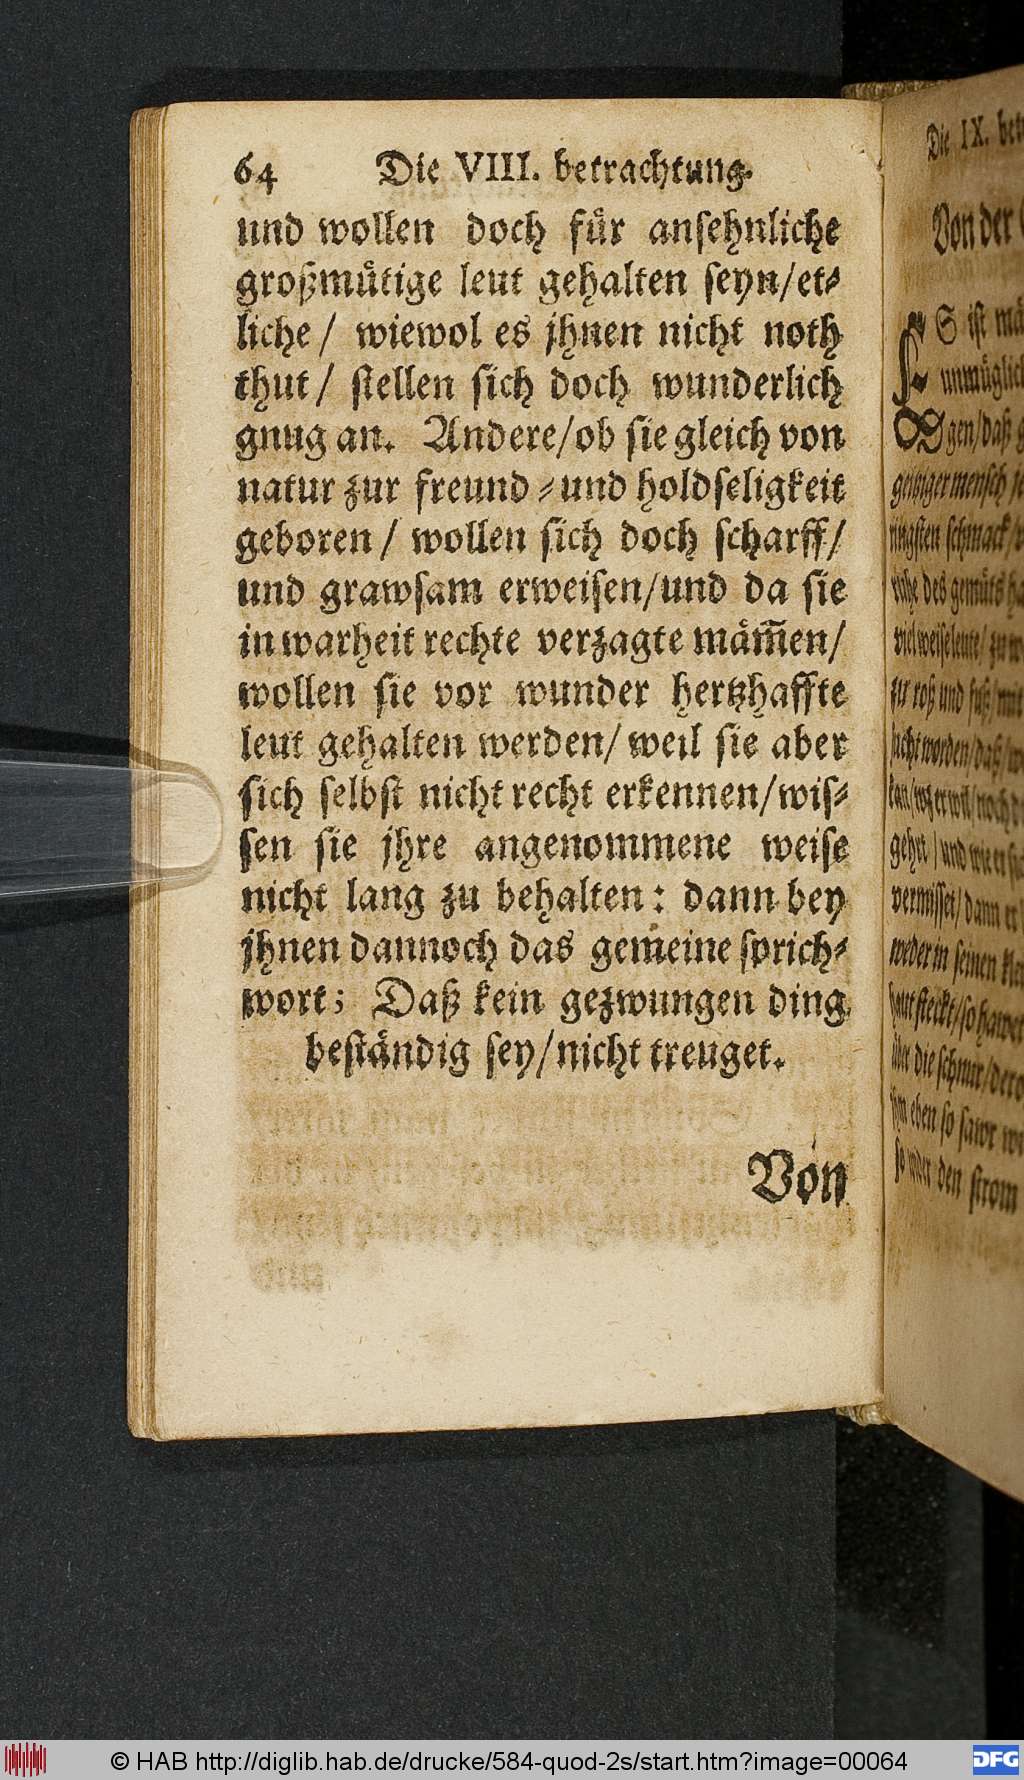 64 Die VIII. betrachtung.
und wollen doch für ansehnliche
großmütige leut gehalten seyn/et-
liche/ wiewol es jhnen nicht noth
thut/ stellen sich doch wunderlich
gnug an. Andere/ob sie gleich von
natur zur freund-und holdseligkeit
geboren/ wollen sich doch scharff/
und grawsam erweisen/und da sie
in warheit rechte verzagte mäm̃en/
wollen sie vor wunder hertzhaffte
leut gehalten werden/ weil sie aber
sich selbst nicht recht erkennen/wis-
sen sie jhre angenommene weise
nicht lang zu behalten: dann bey
jhnen dannoch das gemeine sprich-
wort; Daß kein gezwungen ding
beständig sey/nicht treuget.
Von
Die IX.
Von der
ES ist
unmüglich
gen/daß
geitziger mensch
ringsten schmack/
ruhe des gemüts
viel weise leute/
zu roß und fuß/
sucht worden/daß/
kan/wz er wil/noch
gehrt/und wie er
vermisset/dann er
weder in seinen
haut steckt/so
über die schnur/
jhm eben so sawr
so wider den strom
© HAB http://diglib.hab.de/drucke/584-quod-2s/start.htm?image=00064
DFG